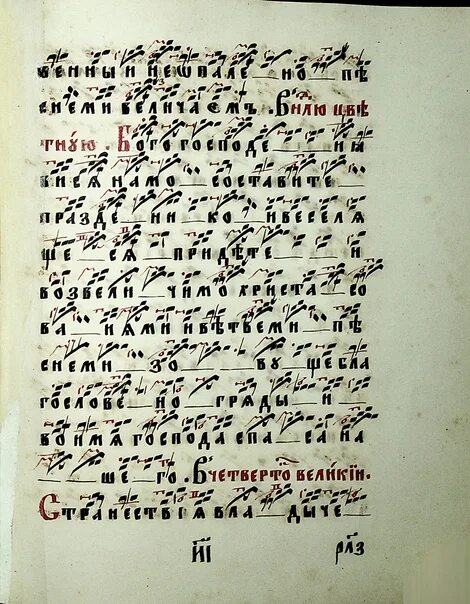 венныи нешвале__но__пѣ
снеми величаемъ. Внлю цвѣ
тнꙋю. Бого господе__ны
вися намо__составите__
празде__ни__ко__ивеселя
ще__ся__придѣте__и
возвели__чимо христа__со
ва__иями ивѣтвеми__пѣ
снеми__зо__вꙋще бла
гослове__но__гряды__и__
во имя господа спа__са на
__ше__го. Вчетверто̑ великїи.
Странествїя вла__дыче__
н҃і рл҃з